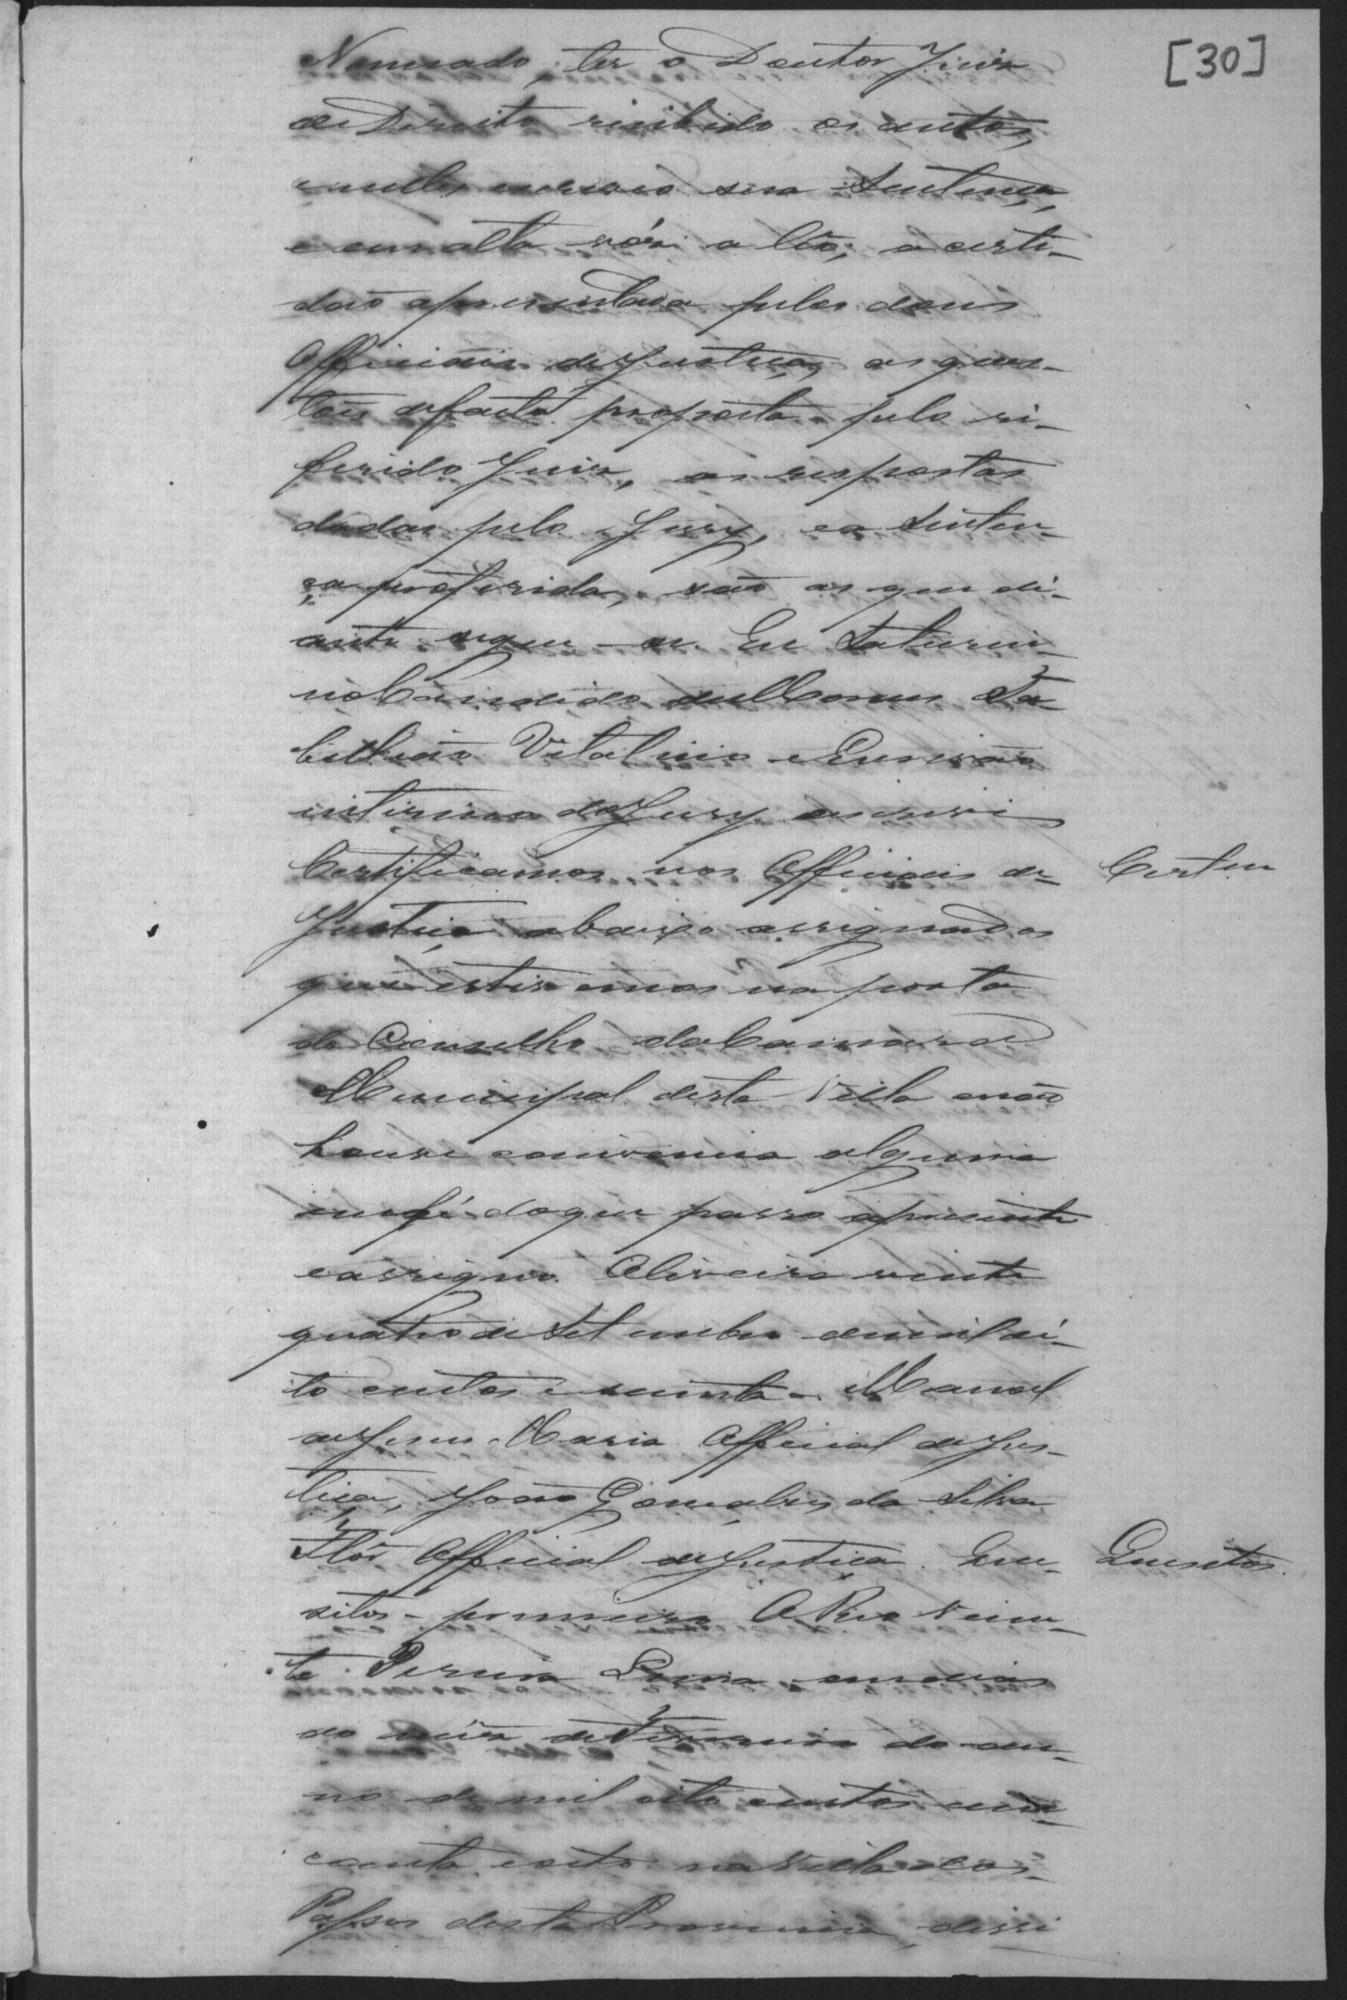 [30]
Nomeado, ter o Doutor Juiz
de Direito recebido os autos,
e nelles escrevêo sua Sentença,
e em alta vóz a lêo; a certi-
dão apresentada pelos dous
Officiaes de Justiça, as ques-
tões de facto proposta pelo re-
ferido Juiz, as respostas
dadas pelo Jury, e a Senten-
ça proferida, são as que di-
ante segue-se. Eu Saturni-
no Candido
bellião Vitalicio e Escrivão
interino do Jury escrevi
Certificamos nos Officiaes de
Certam
Justiça abaixo assignados
que estivemos na porta
do Conselho da Camara
Municipal desta Villa e não
houve conivencia alguma
em fé do que passo a presente
e assigno. Oliveira vinte
quatro de Setembro de mil oi-
to centos e secenta - Manoel
de Jesus Maria Official de Jus-
tiça, João Gonçalves da Silva
Flôr Official de Justiça. Que-
Quesitos.
zitos - primeiro O Reo Vicen-
te Pereira Lima em dias
do mêz de Fevereiro do an-
no de mil oito centos cin-
coenta e oito na Villa dos
Passos desta Provincia, dissi